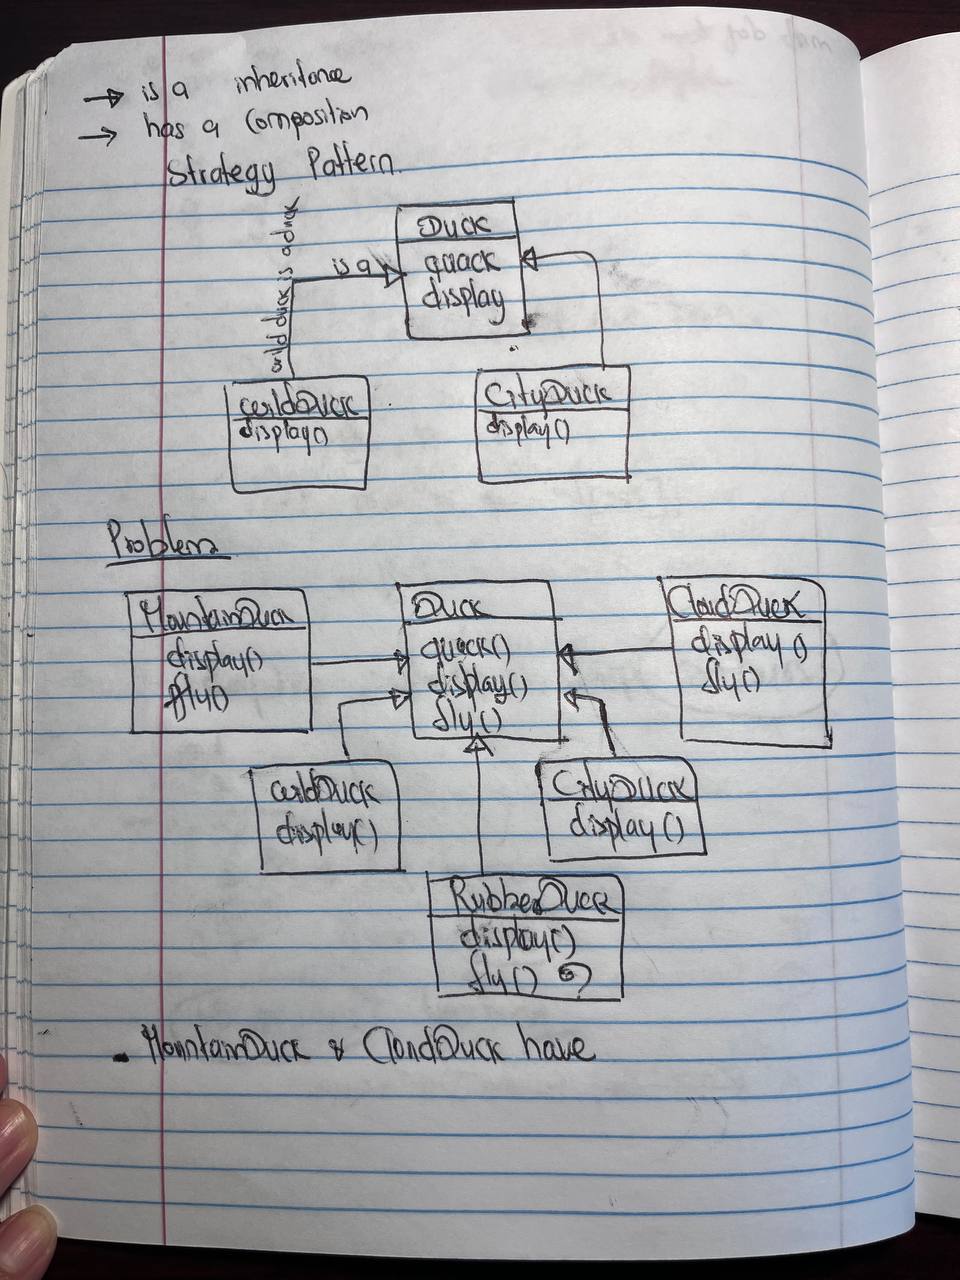 → is a inheritance
→ has a composition
Strategy Pattern.
Duck
quack
display
is a
wild duck is a duck
WildDuck
display()
CityDuck
display()
Problem
MountainDuck
display()
fly()
Duck
quack()
display()
fly()
CloudDuck
display()
fly()
WildDuck
display()
CityDuck
display()
RubberDuck
display()
fly() ?
- MountainDuck & CloudDuck have